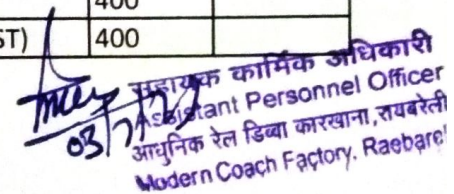 400
ST) 400
सहायक कार्मिक अधिकारी
Assistant Personnel Officer
आधुनिक रेल डिब्बा कारखाना, रायबरेली
Modern Coach Factory. Raebareli